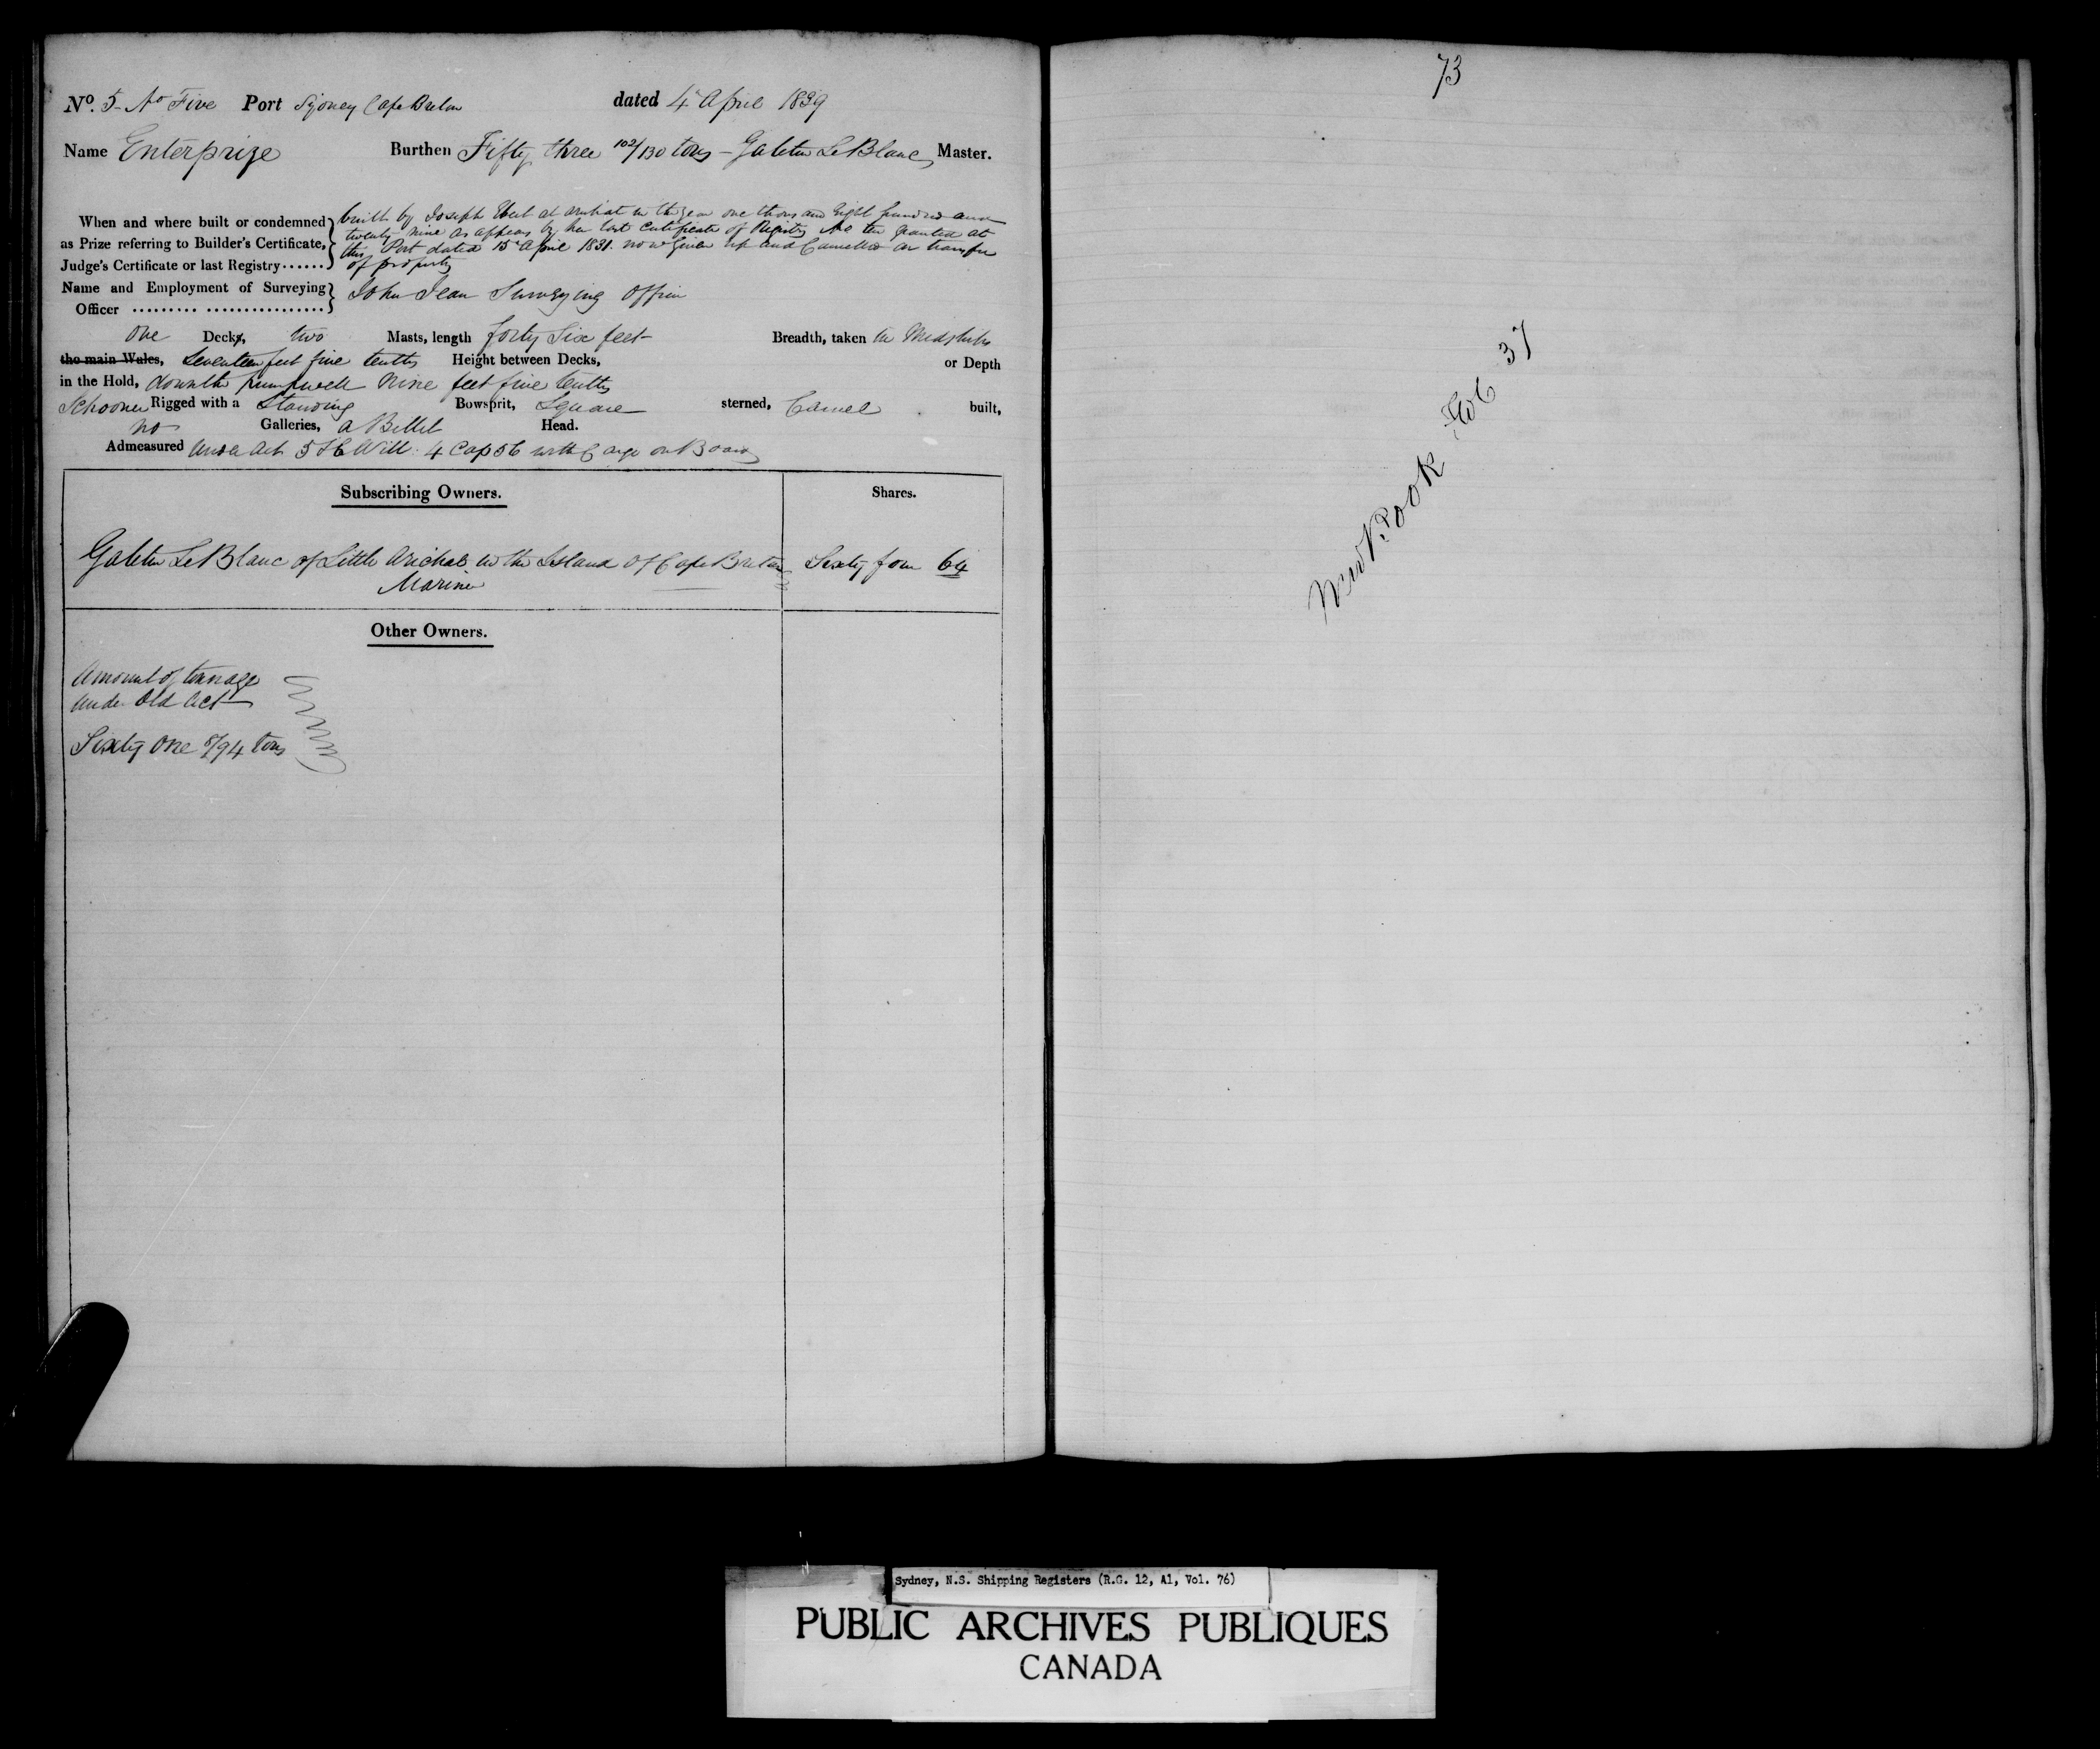 No. 5 - No Five Port Sydney Cape Breton dated 4 April 1839
Name Enterprize Burthen Fifty three 102/130 tons - Galetin LeBlanc Master.
When and where built or condemned as Prize referring to Builder's Certificate, Judge's Certificate or last Registry......
built by Joseph at Arichat in the year one thous and Eight hundred and
twenty nine as appears by her last Certificate of Registry No ten granted at
this Port dated 15 April 1831. now Given up and Cancelled on transfer
of property
Name and Employment of Surveying Officer ......... ................ John Jean Surveying Officer
one Decks, two Masts, length forty Six feet Breadth, taken in Midships
the main Wales, Seventeen feet five tenths Height between Decks, or Depth
in the Hold, down the pumpwell Nine feet five tenths
Schooner Rigged with a Standing Bowsprit, Square sterned, Carvel built,
no Galleries, a Billet Head.
Admeasured Under Act 5 & 6 Will. 4 Cap 56 with Cargo on Board
Subscribing Owners. Shares.
Galetin LeBlanc of Little Arichat in the Island of Cape Breton Sixty four 64
Mariner
Other Owners.
Amount of tonnage
under Old Act
Sixty one 8/94 tons
73
New Book Fol 37
Sydney, N.S. Shipping Registers (R.G. 12, A1, Vol. 76)
PUBLIC ARCHIVES PUBLIQUES
CANADA